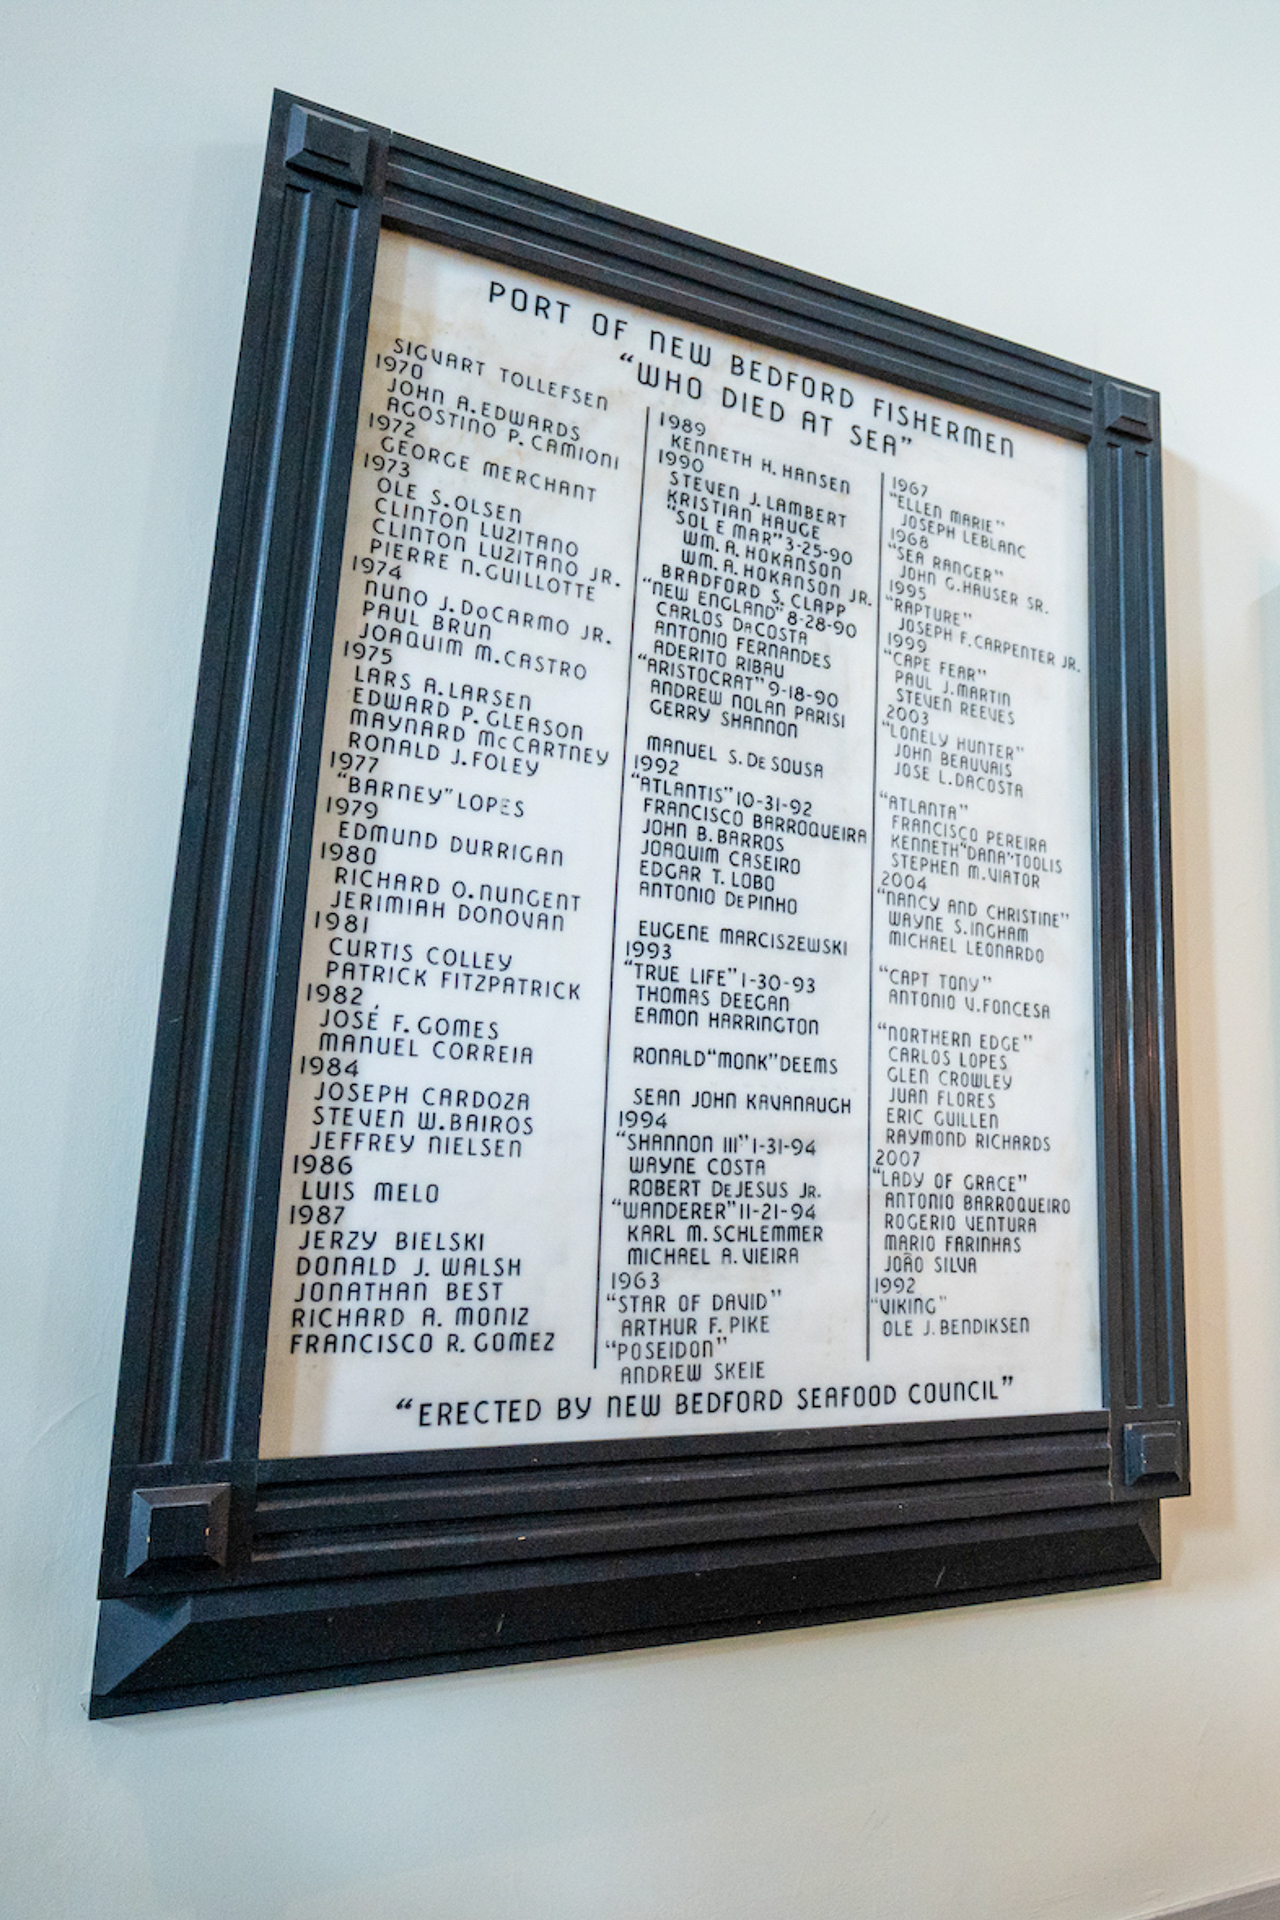 PORT OF NEW BEDFORD FISHERMEN
"WHO DIED AT SEA"
SIGVART TOLLEFSEN
1970
JOHN A. EDWARDS
AGOSTINO P. CAMIONI
1972
GEORGE MERCHANT
1973
OLE S. OLSEN
CLINTON LUZITANO
CLINTON LUZITANO JR.
PIERRE N. GUILLOTTE
1974
NUNO J. DoCARMO JR.
PAUL BRUN
JOAQUIM M. CASTRO
1975
LARS A. LARSEN
EDWARD P. GLEASON
MAYNARD McCARTNEY
RONALD J. FOLEY
1977
"BARNEY" LOPES
1979
EDMUND DURRIGAN
1980
RICHARD O. NUNGENT
JERIMIAH DONOVAN
1981
CURTIS COLLEY
PATRICK FITZPATRICK
1982
JOSÉ F. GOMES
MANUEL CORREIA
1984
JOSEPH CARDOZA
STEVEN W. BAIROS
JEFFREY NIELSEN
1986
LUIS MELO
1987
JERZY BIELSKI
DONALD J. WALSH
JONATHAN BEST
RICHARD A. MONIZ
FRANCISCO R. GOMEZ
1989
KENNETH H. HANSEN
1990
STEVEN J. LAMBERT
KRISTIAN HAUGE
"SOL E MAR" 3-25-90
WM. A. HOKANSON
WM. A. HOKANSON JR.
BRADFORD S. CLAPP
"NEW ENGLAND" 8-28-90
CARLOS DaCOSTA
ANTONIO FERNANDES
ADERITO RIBAU
"ARISTOCRAT" 9-18-90
ANDREW NOLAN PARISI
GERRY SHANNON
MANUEL S. DeSOUSA
1992
"ATLANTIS" 10-31-92
FRANCISCO BARROQUEIRA
JOHN B. BARROS
JOAQUIM CASEIRO
EDGAR T. LOBO
ANTONIO DePINHO
EUGENE MARCISZEWSKI
1993
"TRUE LIFE" 1-30-93
THOMAS DEEGAN
EAMON HARRINGTON
RONALD "MONK" DEEMS
SEAN JOHN KAVANAUGH
1994
"SHANNON III" 1-31-94
WAYNE COSTA
ROBERT DeJESUS JR.
"WANDERER" 11-21-94
KARL M. SCHLEMMER
MICHAEL A. VIEIRA
1963
"STAR OF DAVID"
ARTHUR F. PIKE
"POSEIDON"
ANDREW SKEIE
1967
"ELLEN MARIE"
JOSEPH LEBLANC
1968
"SEA RANGER"
JOHN G. HAUSER SR.
1995
"RAPTURE"
JOSEPH F. CARPENTER JR.
1999
"CAPE FEAR"
PAUL J. MARTIN
STEVEN REEVES
2003
"LONELY HUNTER"
JOHN BEAUVAIS
JOSE L. DACOSTA
"ATLANTA"
FRANCISCO PEREIRA
KENNETH "DANA" TOOLIS
STEPHEN M. VIATOR
2004
"NANCY AND CHRISTINE"
WAYNE S. INGHAM
MICHAEL LEONARDO
"CAPT TONY"
ANTONIO V. FONCESA
"NORTHERN EDGE"
CARLOS LOPES
GLEN CROWLEY
JUAN FLORES
ERIC GUILLEN
RAYMOND RICHARDS
2007
"LADY OF GRACE"
ANTONIO BARROQUEIRO
ROGERIO VENTURA
MARIO FARINHAS
JOÃO SILVA
1992
"VIKING"
OLE J. BENDIKSEN
"ERECTED BY NEW BEDFORD SEAFOOD COUNCIL"